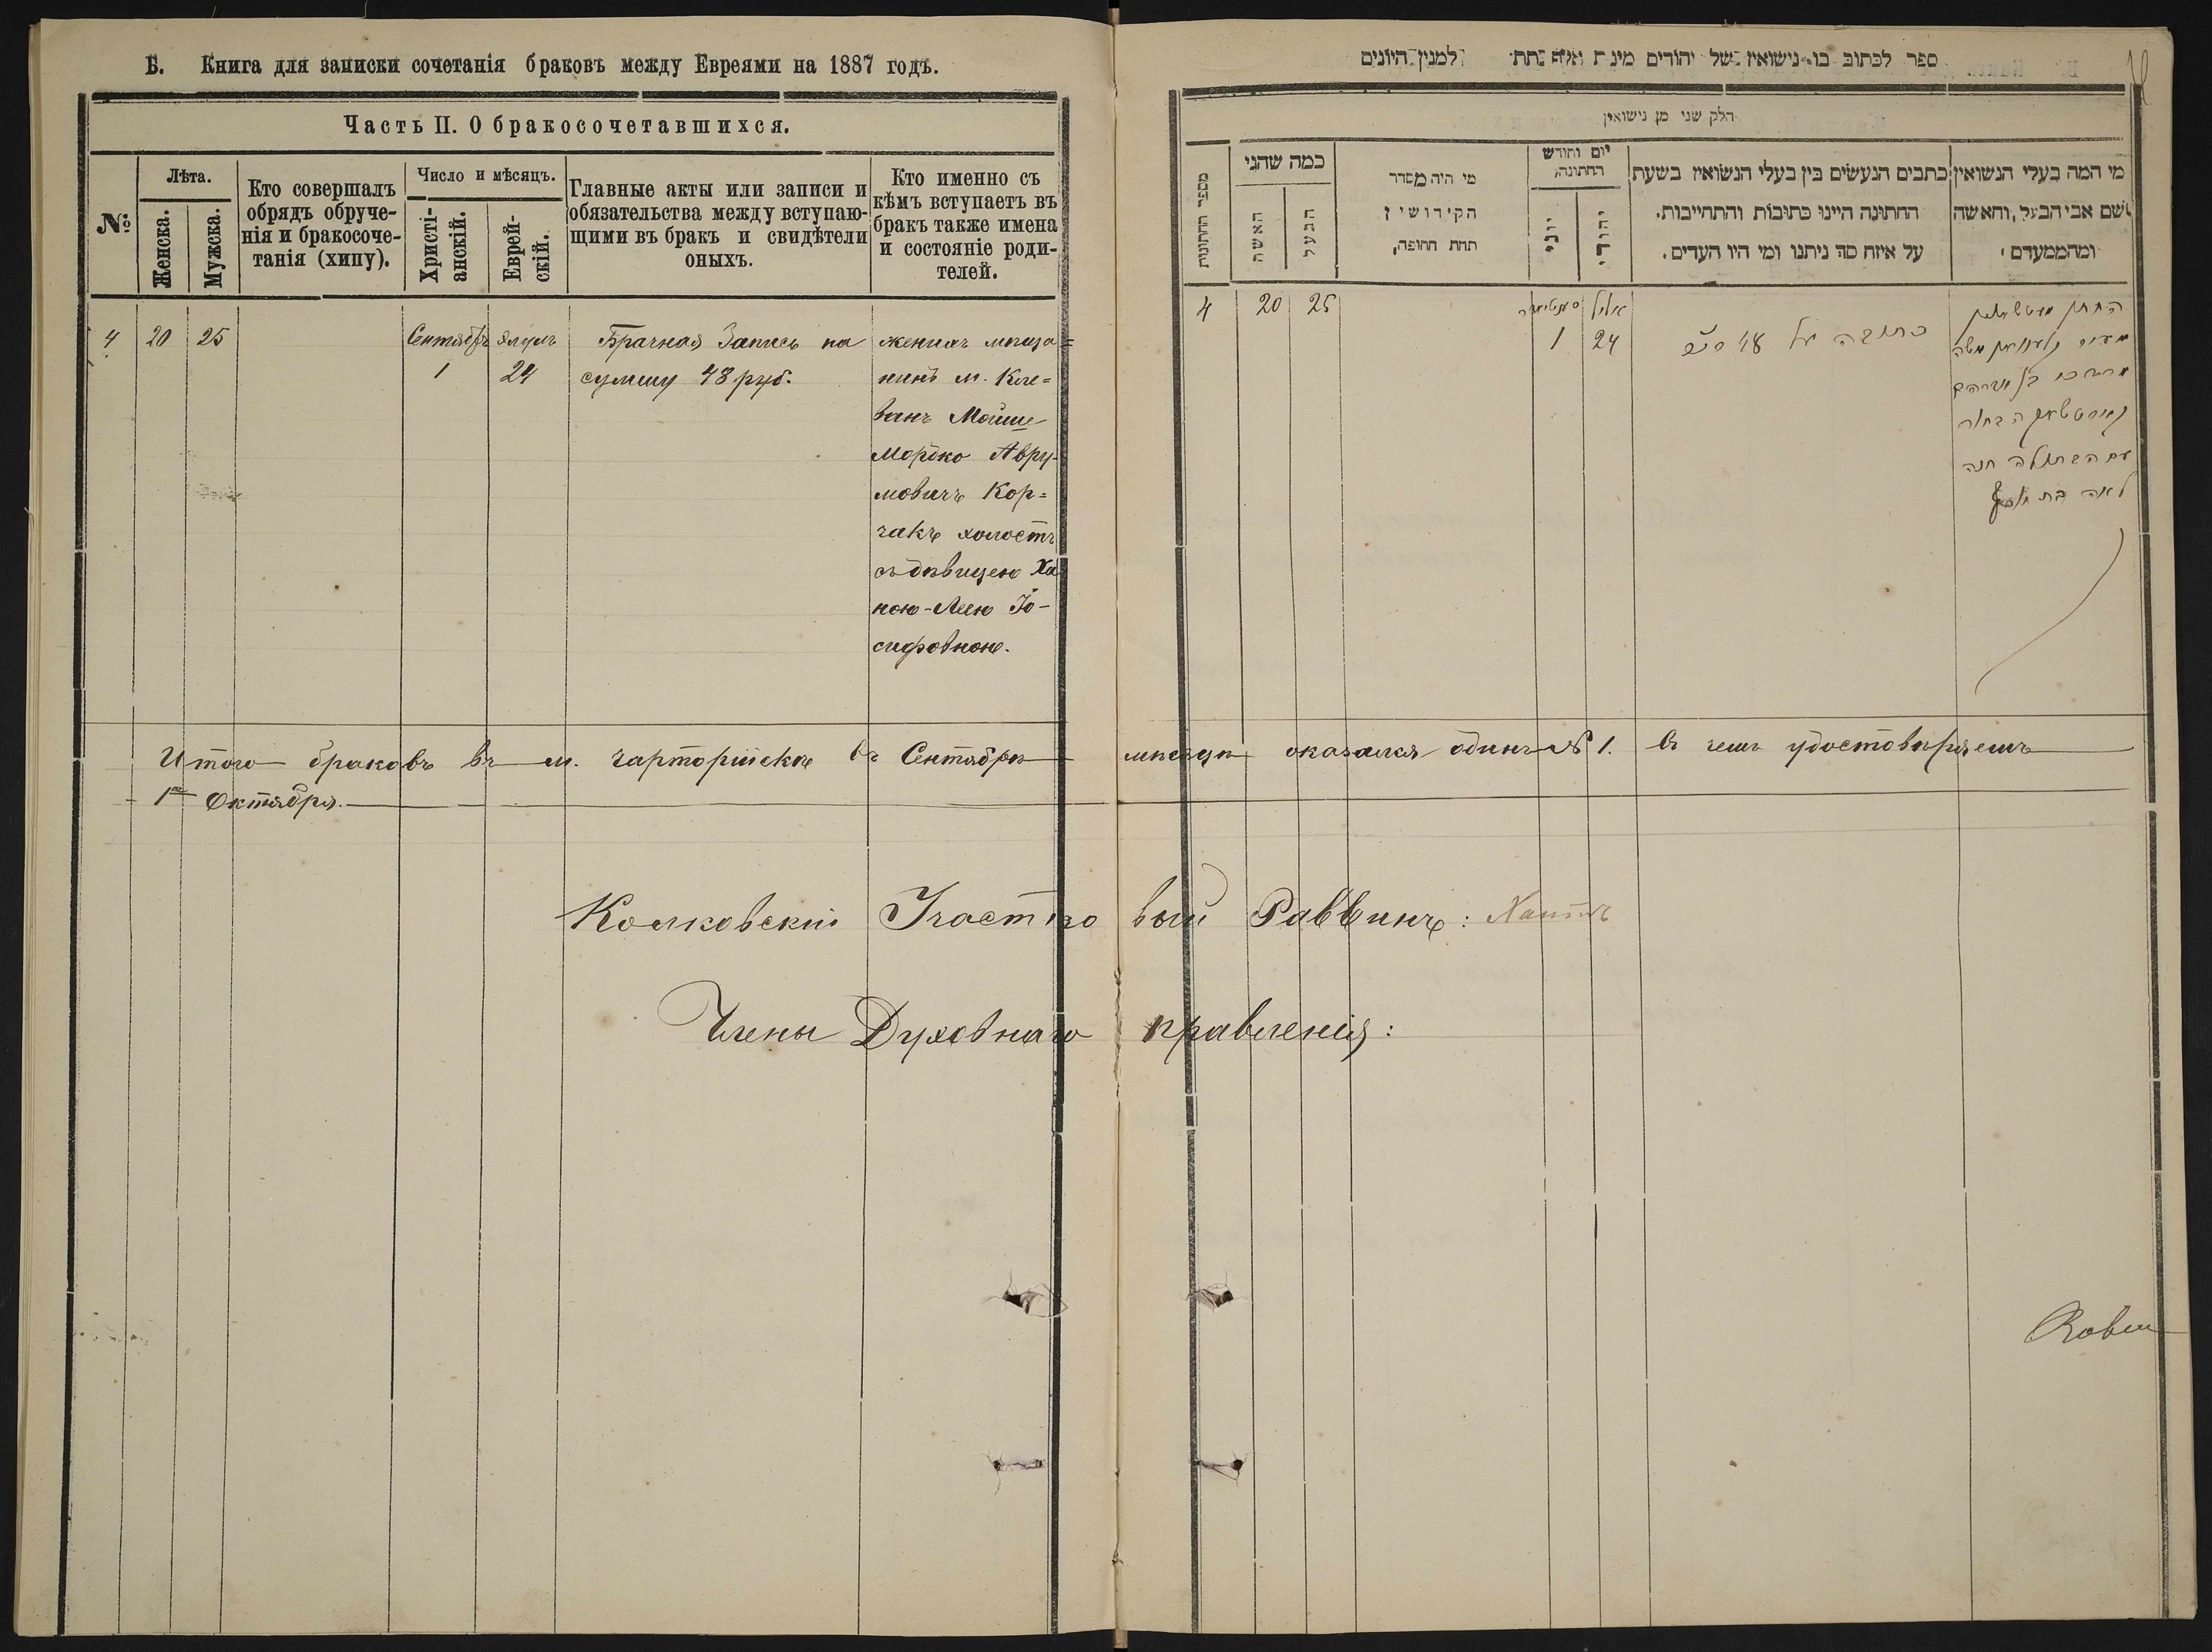 Б. Книга для записки сочетанія браковъ между Евреями на 1887 годъ.
Часть II. О бракосочетавшихся.
№
Лѣта.
Женска.
Мужска.
Кто совершалъ
обрядъ обруче-
нія и бракосоче-
танія (хипу).
Число и мѣсяцъ.
Христі-
анскій.
Еврей-
скій.
Главные акты или записи и
обязательства между вступаю-
щими въ бракъ и свидѣтели
оныхъ.
Кто именно съ
кѣмъ вступаетъ въ
бракъ также имена
и состояніе роди-
телей.
4 20 25
Сентябрь
1
Элулъ
24
Брачная Запись на
сумму 48 руб.
женихъ мѣща=
нинъ м. Кле=
вань Мойше
Мордко Авру-
мовичъ Кор=
чакъ холостъ
съ дѣвицею Ха
ною-Леею Іо-
сифовною.
ספר לכתוב בו נישואין של יהודים למנין היונים
חלק שני מן נישואין
מספר החתונות
כמה שהני
האשה
הבעל
מי היה מסדר
הקידושין
תחת החופה,
יום וחודש
החתונה,
יוני
יהודי
כתבים הנעשים בין בעלי הנשואין בשעת
החתונה היינו כתובות והתחייבות.
על איזה סך ניתנו ומי היו העדים.
מי המה בעלי הנשואין
שם אבי הבעל, והאשה
ומהמעמדם
4 20 25
1
אלול
24
כתובה על 48
החתן
משה
מרדכי בן אברהם
הבחור
עם הבתולה חנה
לאה בת יוסף
Итого браковъ въ м. Чарторійскѣ въ Сентябрѣ мѣсяцѣ оказался одинъ № 1. въ чемъ удостовѣряемъ
1го Октября.
Колковскій Участковый Раввинъ:
Члены Духовнаго правленія: